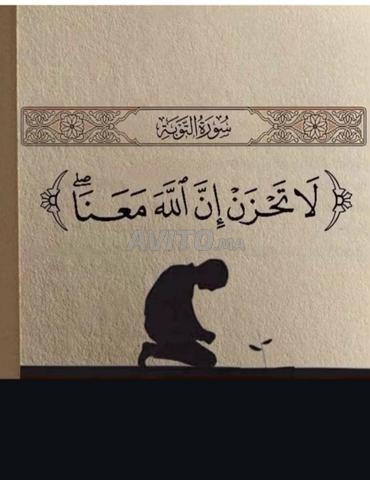 سُورَةُ التَّوْبَةِ
﴿لَا تَحْزَنْ إِنَّ ٱللَّهَ مَعَنَاۖ﴾
AVITO.MA